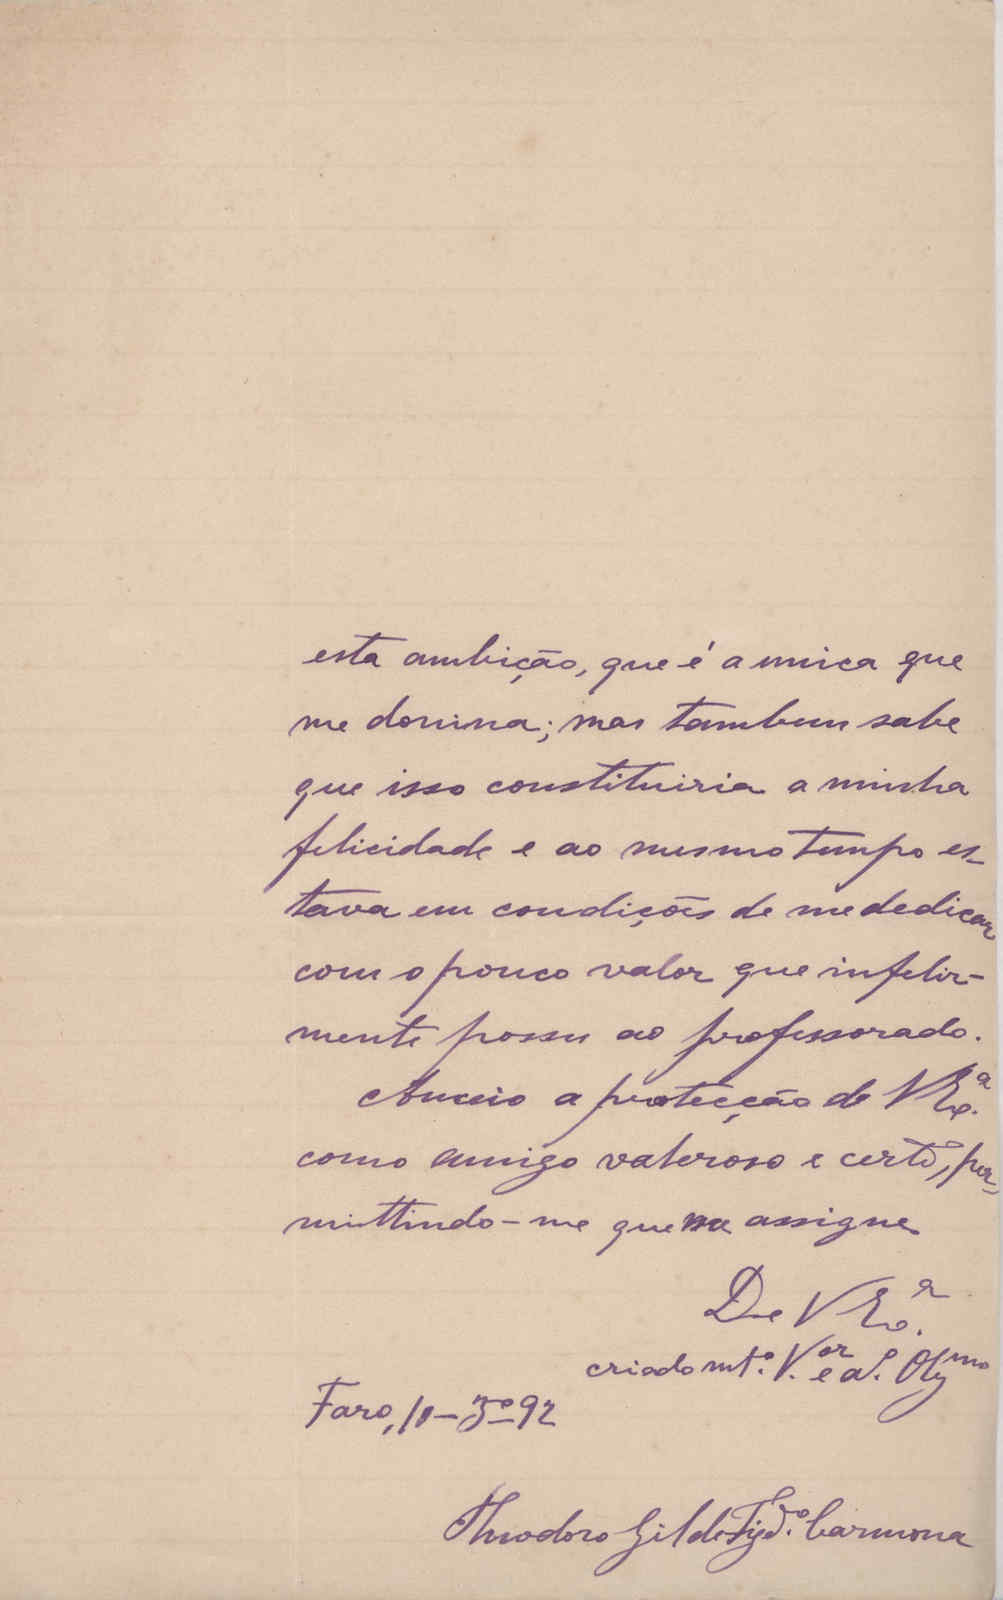 esta ambição, que é a unica que
me domina; mas tambem sabe
que isso constituiria a minha
felicidade e ao mesmo tempo es-
tava em condições de me dedicar
com o pouco valor que infeliz-
mente possu ao professorado.
Anceio a protecção de V Exª.
como amigo valeroso e certo, per-
mittindo-me que me assigne
De V Exª.
criado mtº. V.or e aº. Obgmo
Faro, 10-3º-92
Theodoro Gil de Figdº. Carmona